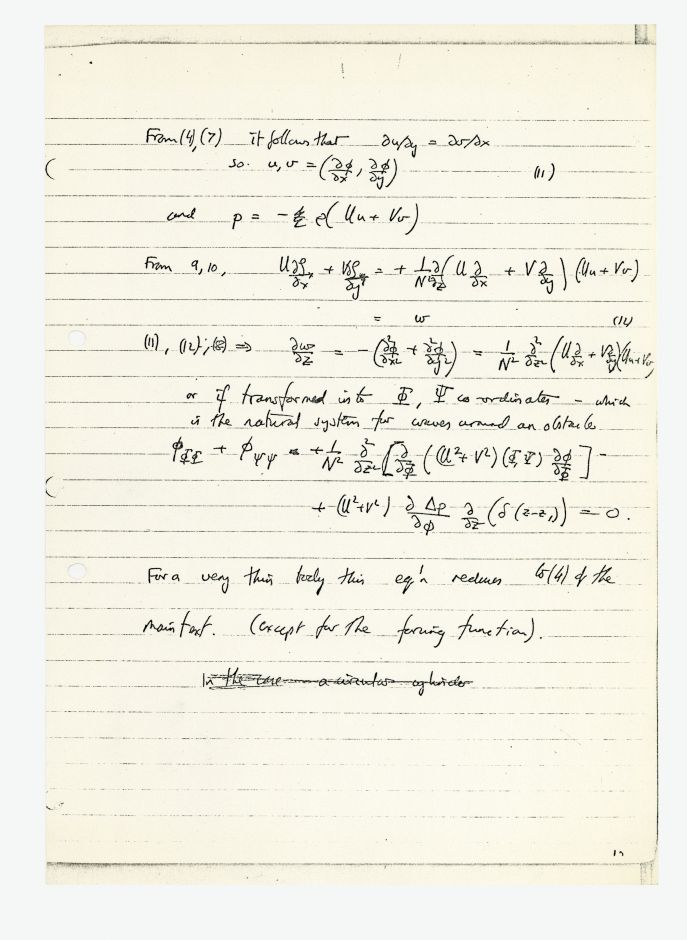 From (4), (7) it follows that ∂u/∂y = ∂v/∂x
so. u, v = (∂ϕ/∂x, ∂ϕ/∂y) (11)
and p = - ρ(Uu + Vv)
From 9, 10, U∂ρ/∂x + V∂ρ/∂y = + 1/N² ∂/∂z (U ∂/∂x + V ∂/∂y) (Uu + Vv)
= w (12)
(11), (12), ⇒ ∂w/∂z = -(∂²ϕ/∂x² + ∂²ϕ/∂y²) = 1/N² ∂²/∂z² (U∂/∂x + V∂/∂y)(Uu+Vv)
or if transformed into Φ, Ψ co-ordinates - which
is the natural system for waves around an obstacle
ϕ_ΦΦ + ϕ_ΨΨ = + 1/N² ∂²/∂z² [∂/∂Φ ((U²+V²)(Φ,Ψ) ∂ϕ/∂Φ] -
+ (U²+V²) ∂Δρ/∂ϕ ∂/∂z (δ(z-z₁)) = 0.
For a very thin body this eq'n reduces to (4) of the
main text. (except for the forcing function).
In the case a circular cylinder